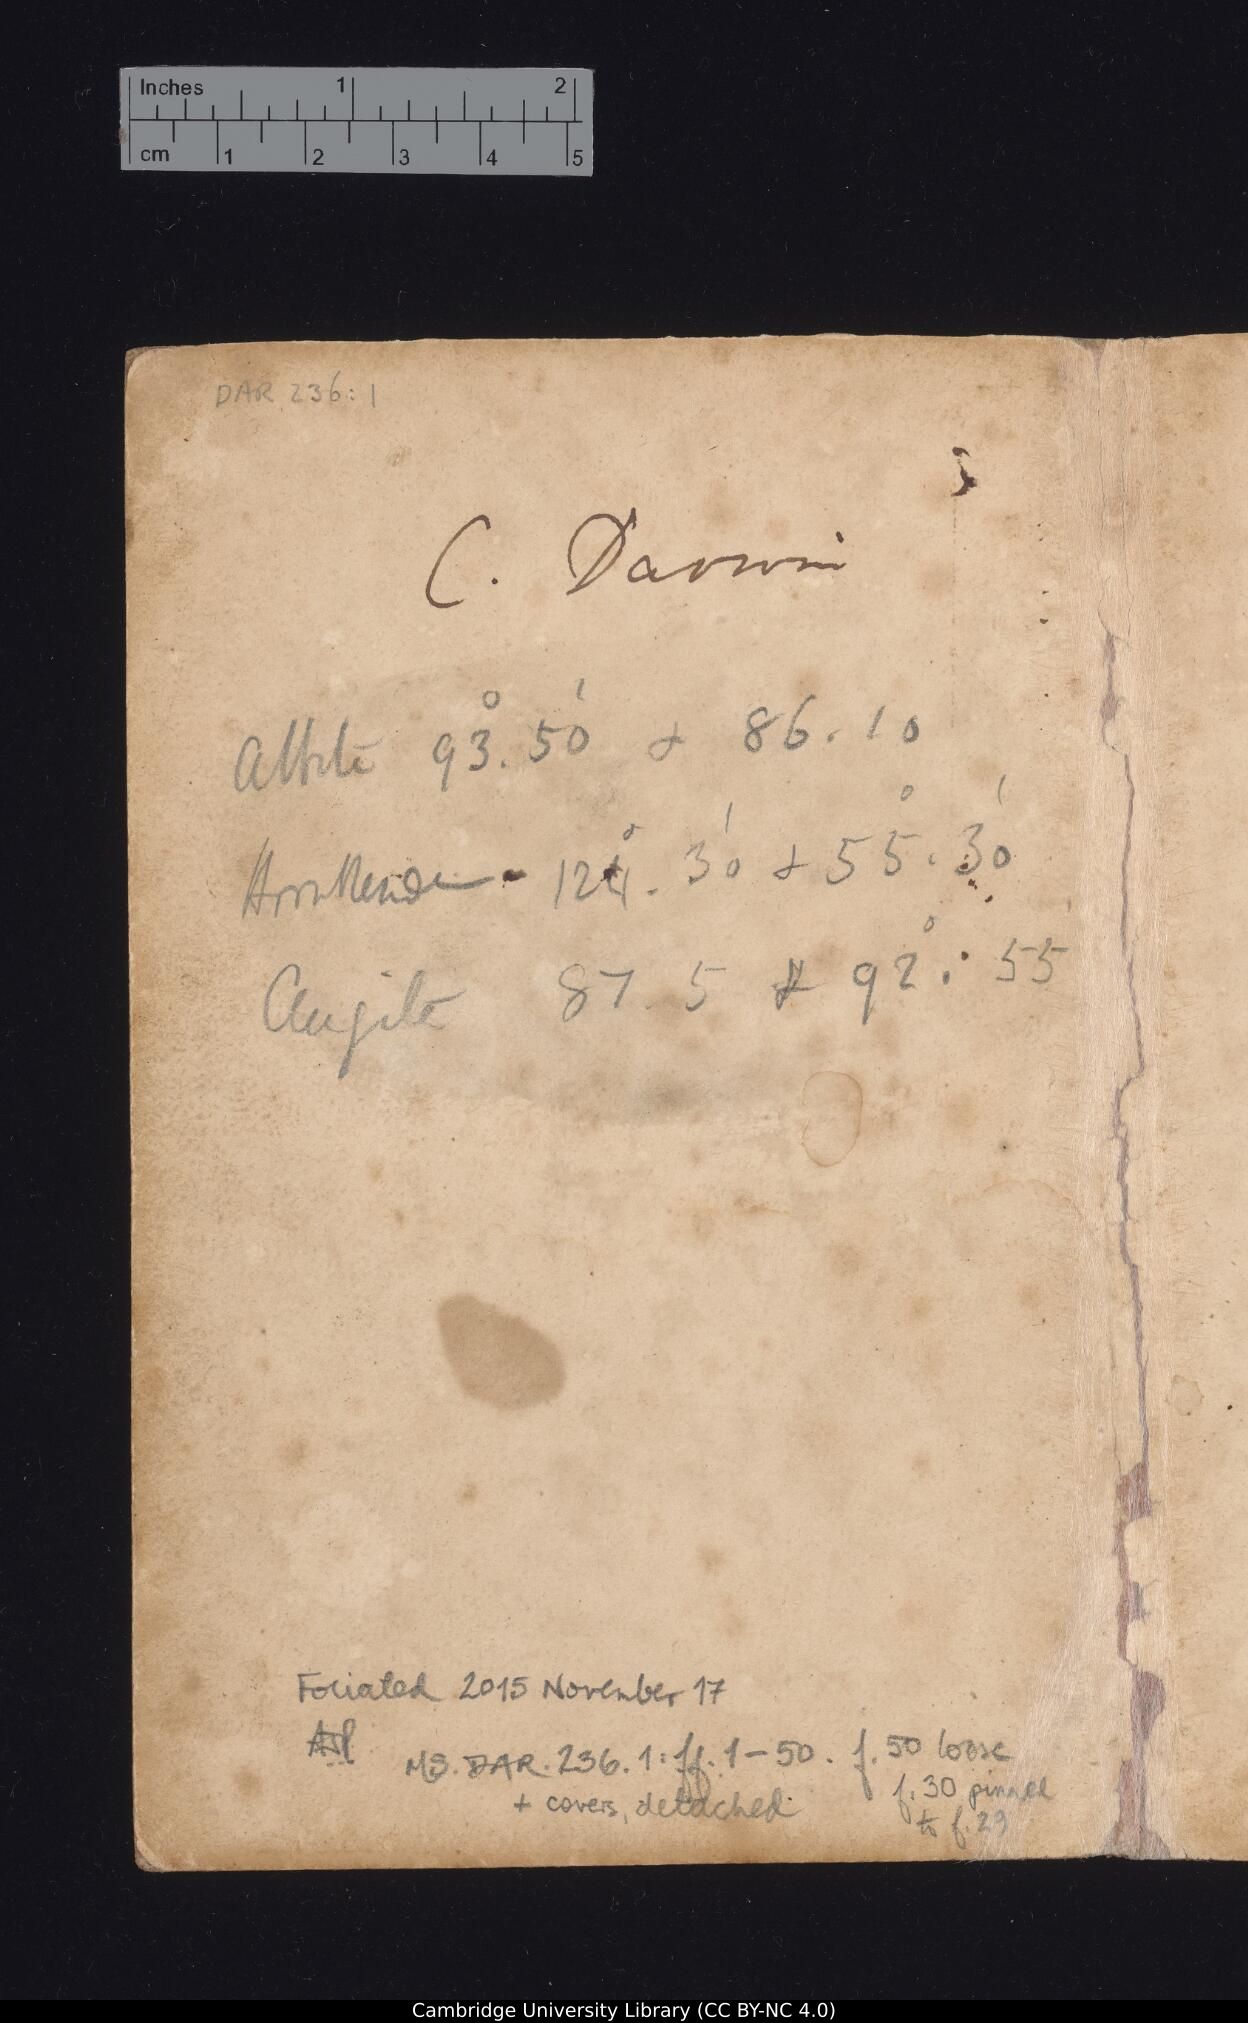 Inches 1 2
cm 1 2 3 4 5
DAR 236:1
C. Darwin
Albite 93°.50' & 86.10
Hornblende - 124°. 30' & 55°. 30'
Augite 87. 5 & 92°. 55'
Foliated 2015 November 17
MS. DAR. 236. 1: ff. 1-50. f. 50 loose
+ covers, detached f. 30 pinned
to f. 29
Cambridge University Library (CC BY-NC 4.0)